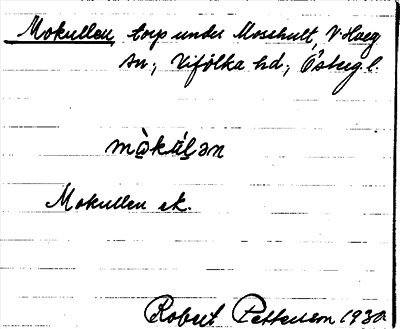 Mokullen torp under Moschult, V. Harg
sn; Vifolka hd; Östug. l.
mò̤kálən
Mokullen ek.
Robert Petterson 1930.